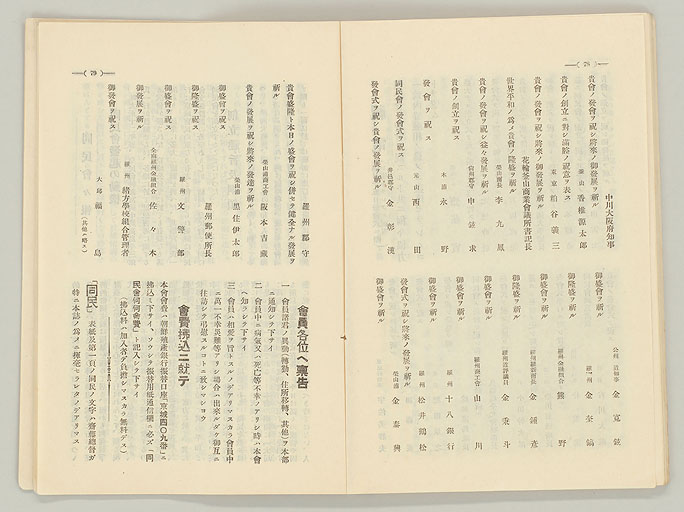 ―( 78 )―
中川大阪府知事
貴會ノ發會ヲ祝シ將來ノ御發展ヲ祈ル
釜山 香椎源太郎
貴會ノ創立ニ對シ滿腔ノ祝意ヲ表ス
東京 粕谷義三
貴會ノ發會ヲ祝シ將來ノ御發展ヲ祈ル
花輪釜山商業會議所書記長
世界平和ノ爲メ貴會ノ隆盛ヲ祈ル
榮山面長 李九鳳
貴會ノ發會ヲ祝シ益々發展ヲ祈ル
申錫求
貴會ノ創立ヲ祝ス
木浦 永野
發會ヲ祝ス
西田
同民會ノ發會式ヲ祝ス
金彰漢
發會式ヲ祝シ貴會ノ發展ヲ祈ル
公州 金寬鉉
御發會ヲ祝ス
羅州
御盛會ヲ祈ル
羅州金融組合 熊野
御隆盛ヲ祈ル
御發展ヲ祈ル
金秉斗
御盛會ヲ祈ル
羅州商工會 山川
御盛會ヲ祈ル
羅州 十八銀行
御盛會ヲ祈ル
羅州 松井鶴松
發會式ヲ祝シ將來ノ發展ヲ祈ル
榮山浦 金泰興
御盛會ヲ祈ル
―( 79 )―
羅州郡守
貴會盛隆ト本日ノ盛會ヲ祝シ併セテ健全ナル發展ヲ
祈ル
榮山浦商工會 阪本吉藏
貴會ノ發展ヲ祝シ將來ノ發達ヲ祈ル
榮山浦 黑住伊太郎
御盛會ヲ祝ス
羅州郵便所長
御隆盛ヲ祈ル
羅州 文警部
御盛會ヲ祝ス
全南羅州金融組合 佐々木
御發展ヲ祈ル
羅州 緒方學校組合管理者
御發會ヲ祝ス
大邱 福島
(其他ハ略ス)
會員各位ヘ稟告
一 會員諸君ノ異動(轉勤、住所移轉、其他)ヲ本部
ニ通知シテ下サイ
二 會員中ニ病氣又ハ死亡等不幸ノアリシ時ハ本會
ヘ知ラシテ下サイ
三 會員ハ相愛ヲ旨トスルノデアリマスカラ會員中
ニ萬一不幸災難等アリシ場合ハ出來ルダケ御互ニ
往訪シテ弔慰スルコトニ致シマショウ
會費拂込ニ就テ
本會會費ハ朝鮮殖產銀行振替口座「京城四〇九番」ニ
拂込ミ下サイ、ソウシテ振替用紙通信欄ニ必ズ「同
民會何何會費」ト記入シテ下サイ
(拂込料ハ加入者ガ負擔シマスカラ無料デス)
「同民」 表紙及第一頁ノ同民ノ文字ハ齋藤總督ガ
特ニ本誌ノ爲メニ揮毫セラレタノデアリマス